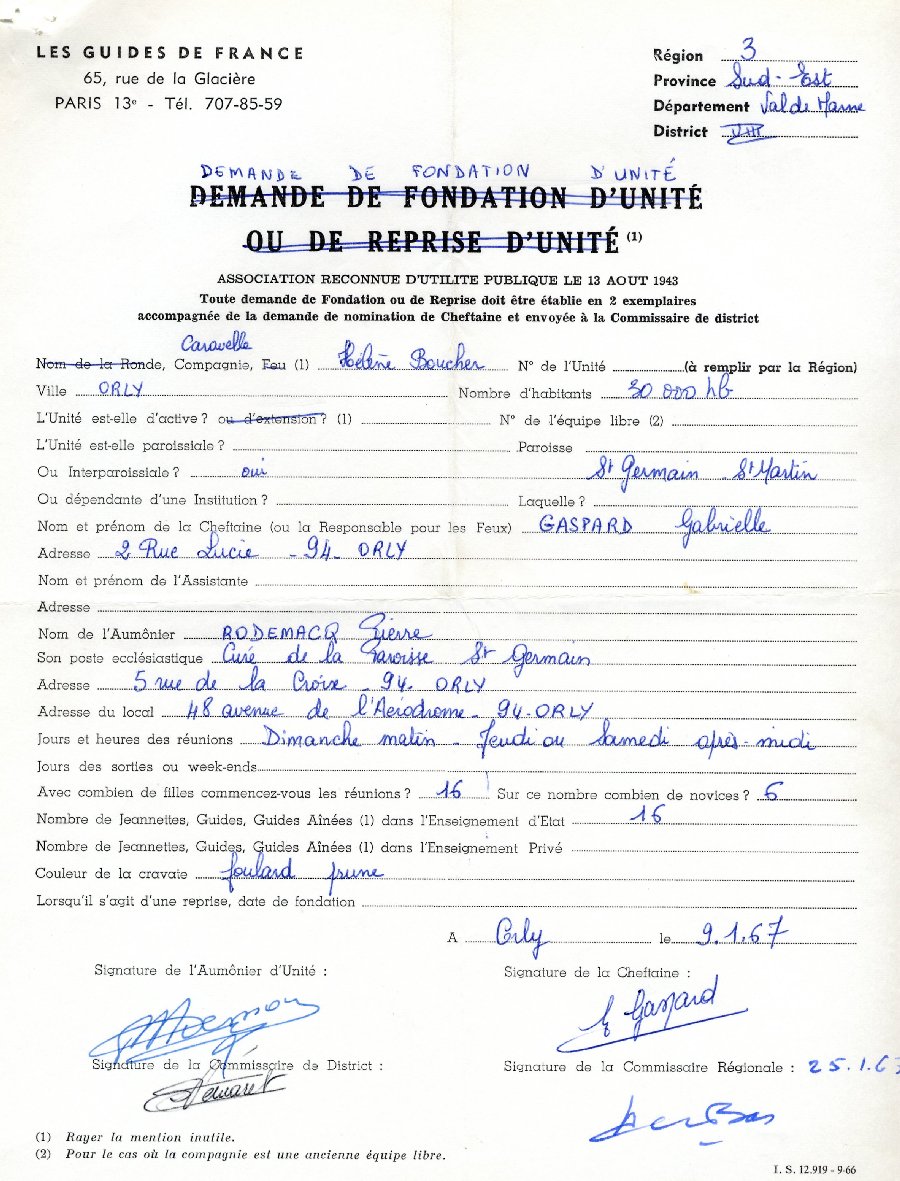 LES GUIDES DE FRANCE
65, rue de la Glacière
PARIS 13e - Tél. 707-85-59
Région 3
Province Sud-Est
Département Val de Marne
District VIII
DEMANDE DE FONDATION D'UNITÉ
DEMANDE DE FONDATION D'UNITÉ
OU DE REPRISE D'UNITÉ (1)
ASSOCIATION RECONNUE D'UTILITE PUBLIQUE LE 13 AOUT 1943
Toute demande de Fondation ou de Reprise doit être établie en 2 exemplaires
accompagnée de la demande de nomination de Cheftaine et envoyée à la Commissaire de district
Caravelle
Nom de la Ronde, Compagnie, Feu (1) Hélène Boucher N° de l'Unité (à remplir par la Région)
Ville ORLY Nombre d'habitants 30 000 hb
L'Unité est-elle d'active ? ou d'extension ? (1) N° de l'équipe libre (2)
L'Unité est-elle paroissiale ? Paroisse
Ou Interparoissiale ? oui St Germain - St Martin
Ou dépendante d'une Institution ? Laquelle ?
Nom et prénom de la Cheftaine (ou la Responsable pour les Feux) GASPARD Gabrielle
Adresse 2 Rue Lucie - 94 - ORLY
Nom et prénom de l'Assistante
Adresse
Nom de l'Aumônier RODEMACQ Pierre
Son poste ecclésiastique Curé de la Paroisse St Germain
Adresse 5 rue de la Croix - 94 - ORLY
Adresse du local 48 avenue de l'Aérodrome - 94 - ORLY
Jours et heures des réunions Dimanche matin - Jeudi ou Samedi après-midi
Jours des sorties ou week-ends
Avec combien de filles commencez-vous les réunions ? 16 Sur ce nombre combien de novices ? 6
Nombre de Jeannettes, Guides, Guides Aînées (1) dans l'Enseignement d'Etat 16
Nombre de Jeannettes, Guides, Guides Aînées (1) dans l'Enseignement Privé
Couleur de la cravate foulard prune
Lorsqu'il s'agit d'une reprise, date de fondation
A Orly le 9.1.67
Signature de l'Aumônier d'Unité : Signature de la Cheftaine :
G Gaspard
Signature de la Commissaire de District : Signature de la Commissaire Régionale : 25.1.67
(1) Rayer la mention inutile.
(2) Pour le cas où la compagnie est une ancienne équipe libre.
I. S. 12.919 - 9-66